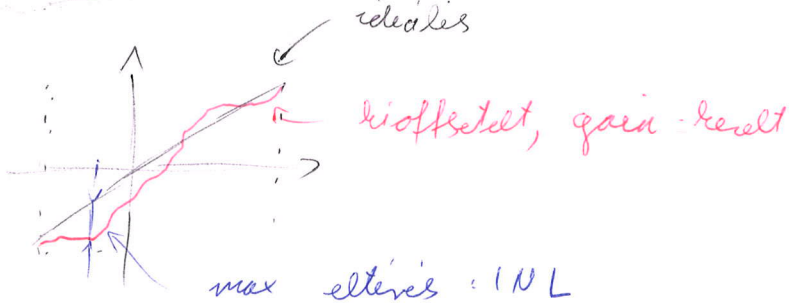 ideális
kioffsetelt, gain-kezelt
max eltérés : INL